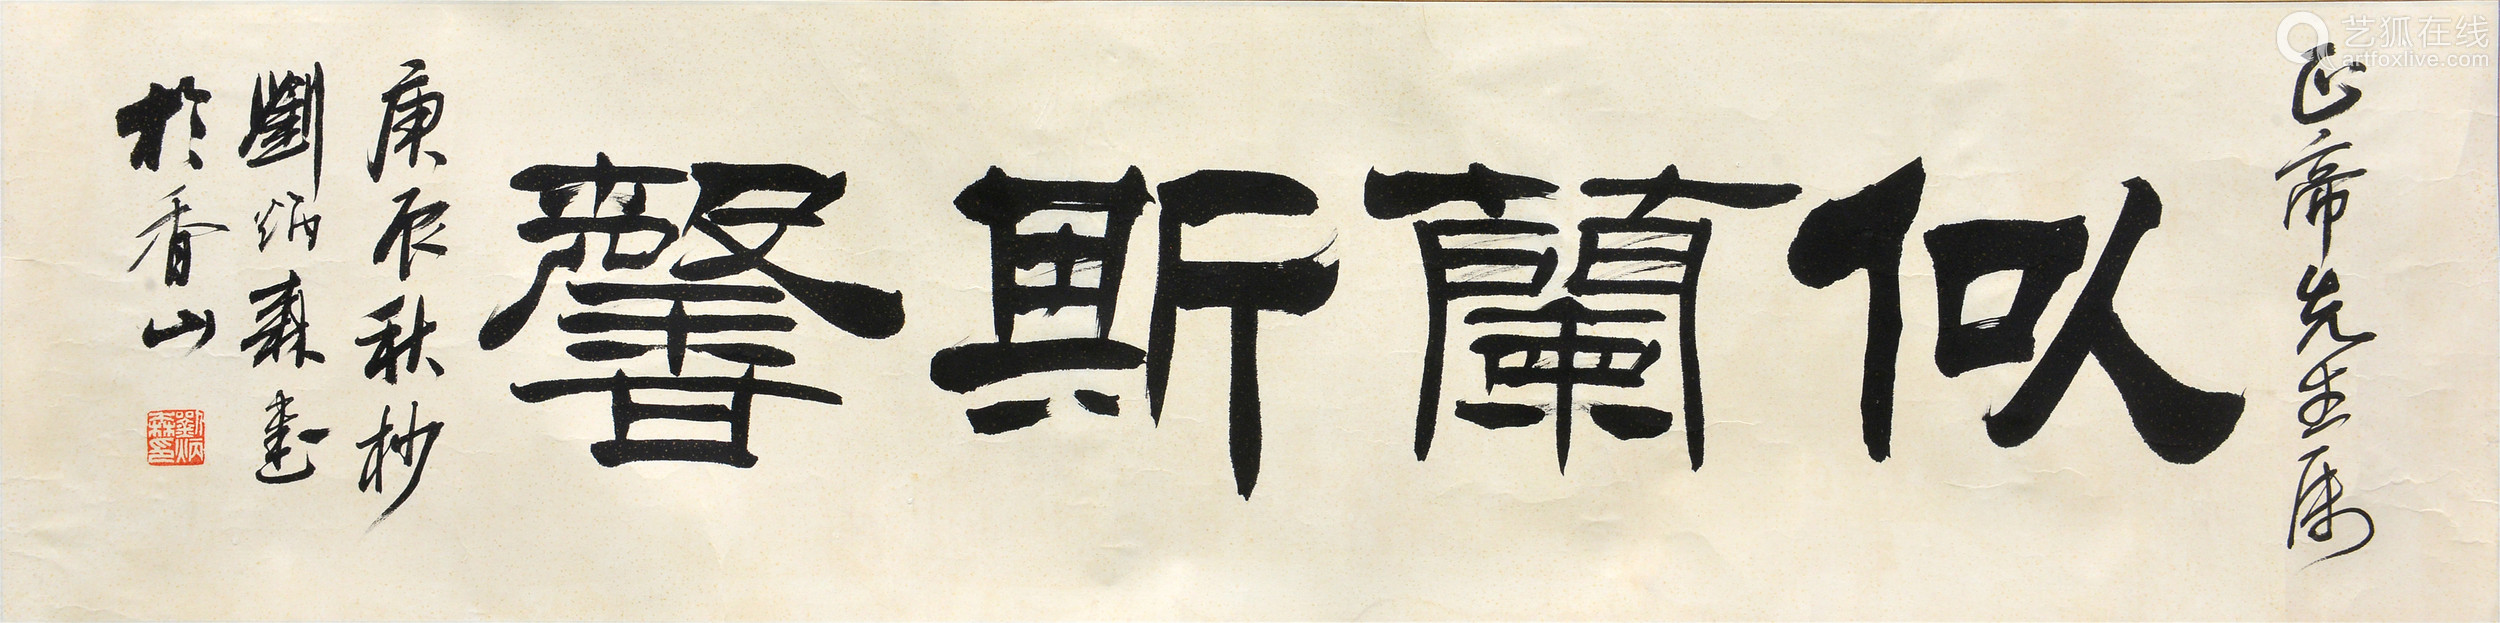 正帝先生属
似蘭斯馨
庚辰秋杪
劉炳森書
於香山
劉炳
森印
艺狐在线
artfoxlive.com